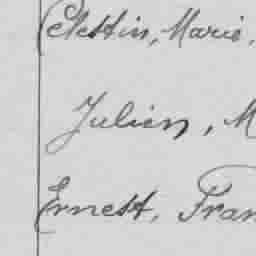 Célestin, Marie,
Julien, M
Ernest, Fran